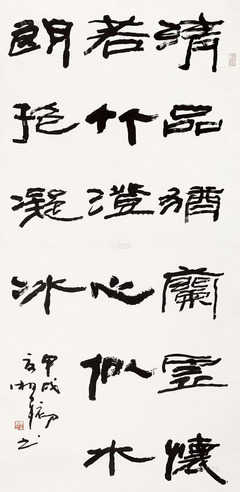 清品猶蘭虛懷
若竹澄心似水
朗抱凝冰
甲戌初